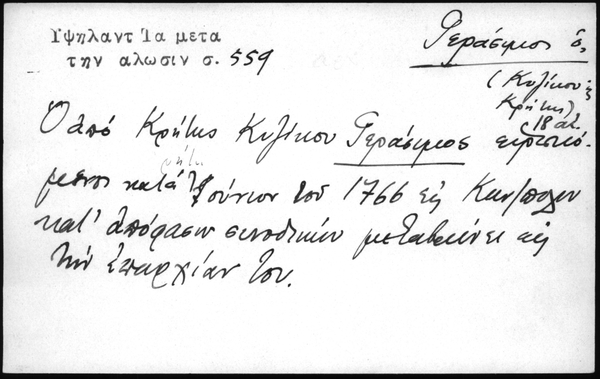 Ὑψηλαντ Ἰα μετα
την αλωσιν σ. 559
Γεράσιμος ὁ,
(Κυζίκου ἐκ
Κρήτης)
18 αἰ.
Ὁ ἀπό Κρήτης Κυζίκου Γεράσιμος εὑρισκό-
μενος κατά Ἰούνιον τοῦ 1766 εἰς Κων/πολιν
κατ' ἀπόφασιν συνοδικήν μεταβαίνει εἰς
τήν ἐπαρχίαν του.